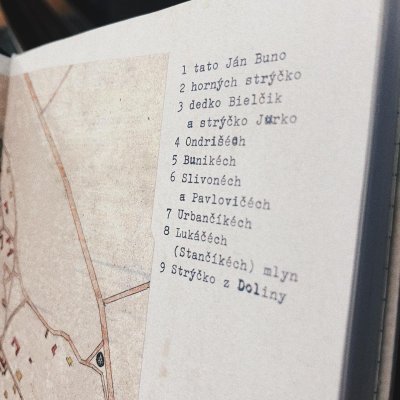 1 tato Ján Buno
2 horných strýčko
3 dedko Bielčik
a strýčko Jurko
4 Ondrišéch
5 Bunikéch
6 Slivonéch
a Pavlovičéch
7 Urbančíkéch
8 Lukáčéch
(Stančíkéch) mlyn
9 Strýčko z Doliny